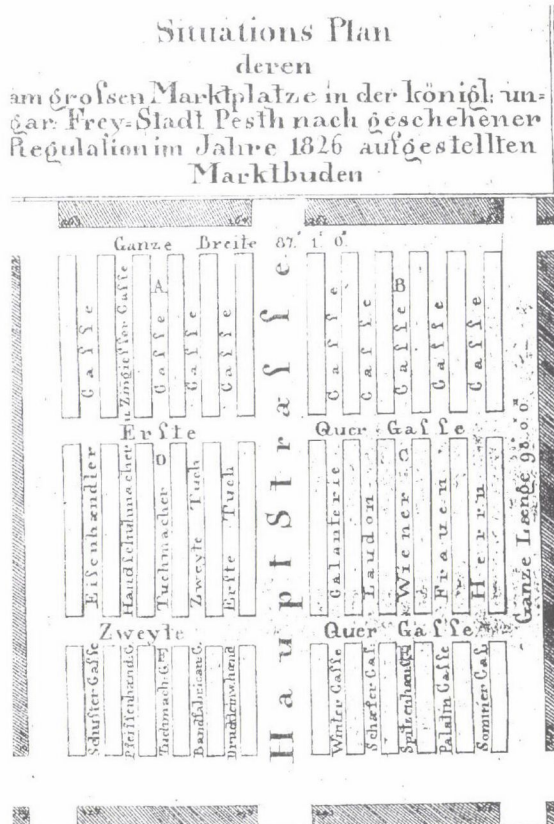 Situations Plan
deren
am großen Marktplatze in der königl: un=
gar: Frey=Stadt Pesth nach geschehener
Regulation im Jahre 1826 aufgestellten
Marktbuden
Ganze Breite 87.° 1.' 0."
Gasse
Zingiesser Gasse
A
Gasse
Gasse
Gasse
HauptStrasse
Gasse
Gasse
B
Gasse
Gasse
Gasse
Ganze Længe 98.° 0.' 0."
Erste
Quer Gasse
Eisenhændler
Handschuhmacher
O
Tuchmacher
Zweyte Tuch
Erste Tuch
Galanterie
Laudon
Wiener
Frauen
Herrn
Zweyte
Quer Gasse
Schuster Gasse
Pfeiffenhænd: G.
Tuchmach: G.
Bandfabrican: G.
Druckleinwhænd
Winter Gasse
Schæfer Gas.
Palatin Gasse
Sommer Gas.